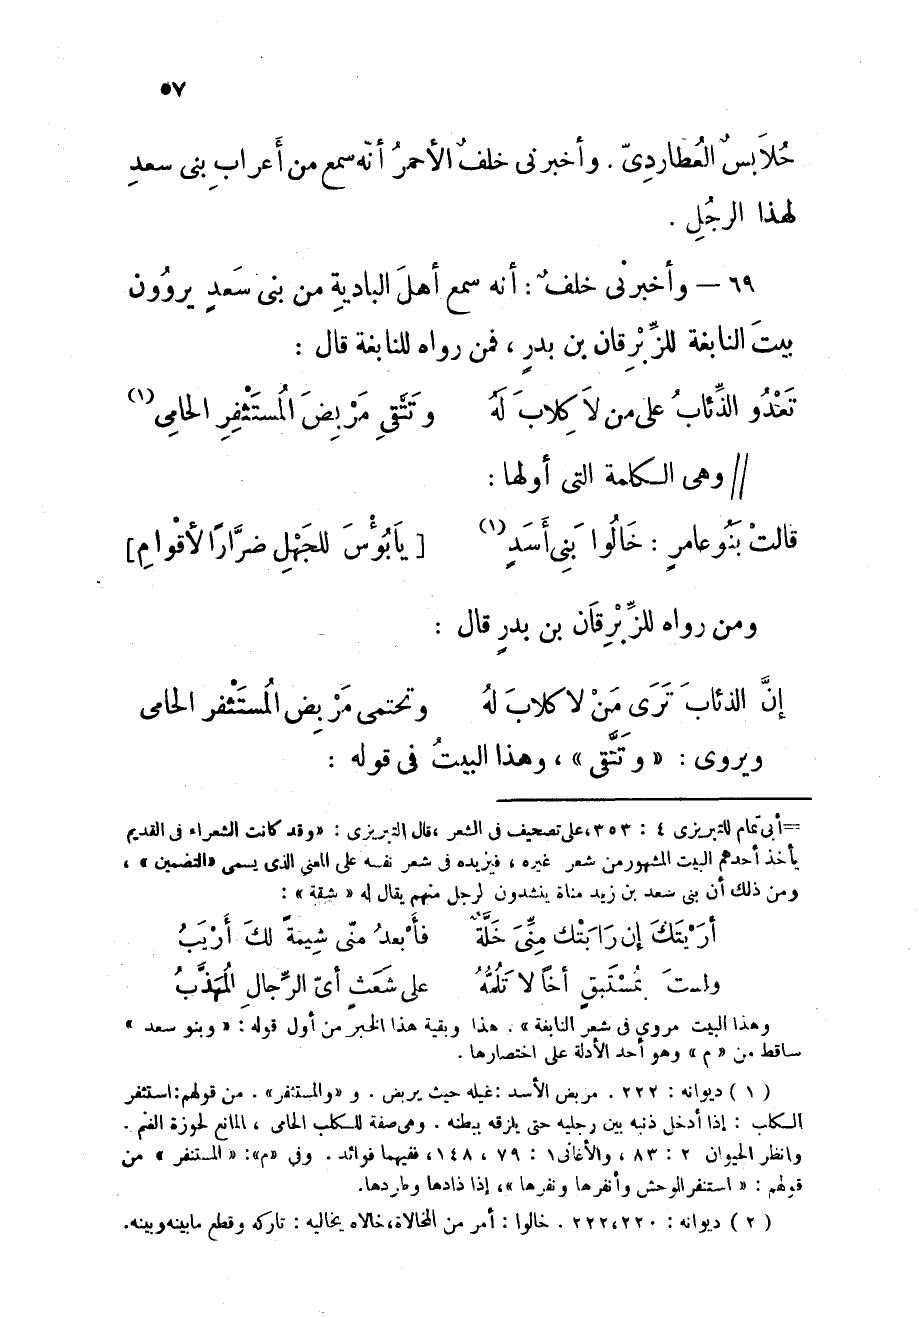 ٥٧
حُلاَبسٌ العُطاردِىّ . وأخبرنى خلفٌ الأحمرُ أنّه سمع من أَعرابِ بنى سعدٍ
لهذا الرجُلِ .
٦٩ — وأخبرنْى خلفٌ : أنه سمع أهلَ الباديةِ من بنى سَعدٍ يروُون
بيتَ النابغة للزِّبْرِقان بن بدرٍ ، فمن رواه للنابغة قال :
تَعْدُو الذِّئابُ على من لاَ كِلابَ لَهُ وتَتَّقِى مَرْبِضَ المُستَثْفِرِ الحامِى (١)
// وهى الكلمة التى أولها :
قالتْ بَنُو عامرٍ : خَالُوا بَنِى أَسَدٍ (١) [ يَا بُؤْسَ للجَهْلِ ضرَّارًا لأقْوامِ]
ومن رواه للزِّبْرِقَان بن بدرٍ قال :
إنَّ الذئابَ تَرَى مَنْ لا كلابَ لهُ وتحتمى مَرْبِضَ المُستَثْفر الحامى
ويروى : « وتَتَّقى » ، وهذا البيتُ فى قوله :
=أبى تمام للتبريزى ٤ : ٣٥٣، على تصحيف فى الشعر ، قال التبريزى : «وقد كانت الشعراء فى القديم
يأخذ أحدهم البيت المشهور من شعر غيره ، فيزيده فى شعر نفسه على المعنى الذى يسمى «التضمين» ،
ومن ذلك أن بنى سعد بن زيد مناة ينشدون لرجل منهم يقال له « شقة » :
أرَيْتَكَ إن رَابَتْك مِنِّىَ خَلَّةٌ فأَبعدُ منّى شِيمةً لكَ أَرْيَبُ
ولستَ بمُسْتَبقٍ أخًا لا تَلُمُّهُ على شَعَثٍ أىّ الرِّجالِ المُهَذَّبُ
وهذا البيت مروى فى شعر النابغة » . هذا وبقية هذا الخبر من أول قوله : « وبنو سعد »
ساقط من « م » وهو أحد الأدلة على اختصارها .
( ١ ) ديوانه : ٢٢٢ . مربض الأسد : غيله حيث يربض . و «والمستنفر» . من قولهم : استثفر
الكلب : إذا أدخل ذنبه بين رجليه حتى يلزقه ببطنه . وهى صفة للكلب الحامى ، المانع لحوزة الغنم .
وانظر الحيوان ٢ : ٨٣ ، والأغانى ١ : ٧٩ ، ١٤٨، ففيهما فوائد . وفى «م»: « المستنفر » من
قولهم : « استنفر الوحش وأنفرها ونفرها »، إذا ذادها وطاردها.
( ٢ ) ديوانه : ٢٢٠، ٢٢٢ . خالوا : أمر من المخالاة، خالاه يخاليه : تاركه وقطع ما بينه وبينه.